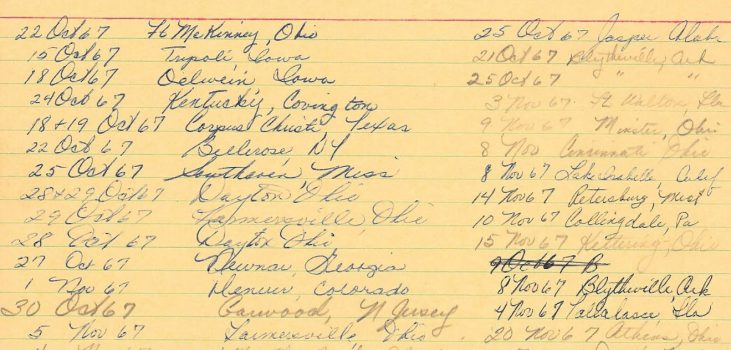 22 Oct 67 Ft McKinney, Ohio
15 Oct 67 Tripoli, Iowa
18 Oct 67 Oelwein Iowa
24 Oct 67 Kentucky, Covington
18+19 Oct 67 Corpus Christi, Texas
22 Oct 67 Bellerose NY
25 Oct 67 Southaven Miss
28+29 Oct 67 Dayton, Ohio
29 Oct 67 Farmersville, Ohio
28 Oct 67 Dayton Ohio,
27 Oct 67 Newnan, Georgia
1 Nov 67 Denver, Colorado
30 Oct 67 Garwood, N Jersey
5 Nov 67 Farmersville Ohio
25 Oct 67 Jasper Alab
21 Oct 67 Blytheville, Ark
25 Oct 67 " "
3 Nov 67 Ft Walton, Fla
9 Nov 67 Minster, Ohio
8 Nov Cincinnati Ohio
8 Nov 67 Lake Isabella Calif
14 Nov 67 Petersburg, Mich
10 Nov 67 Collingdale, Pa
15 Nov 67 Kettering, Ohio
9 Oct 67 B
8 Nov 67 Blytheville, Ark
4 Nov 67 Tallahasee Fla
20 Nov 67 Athens, Ohio